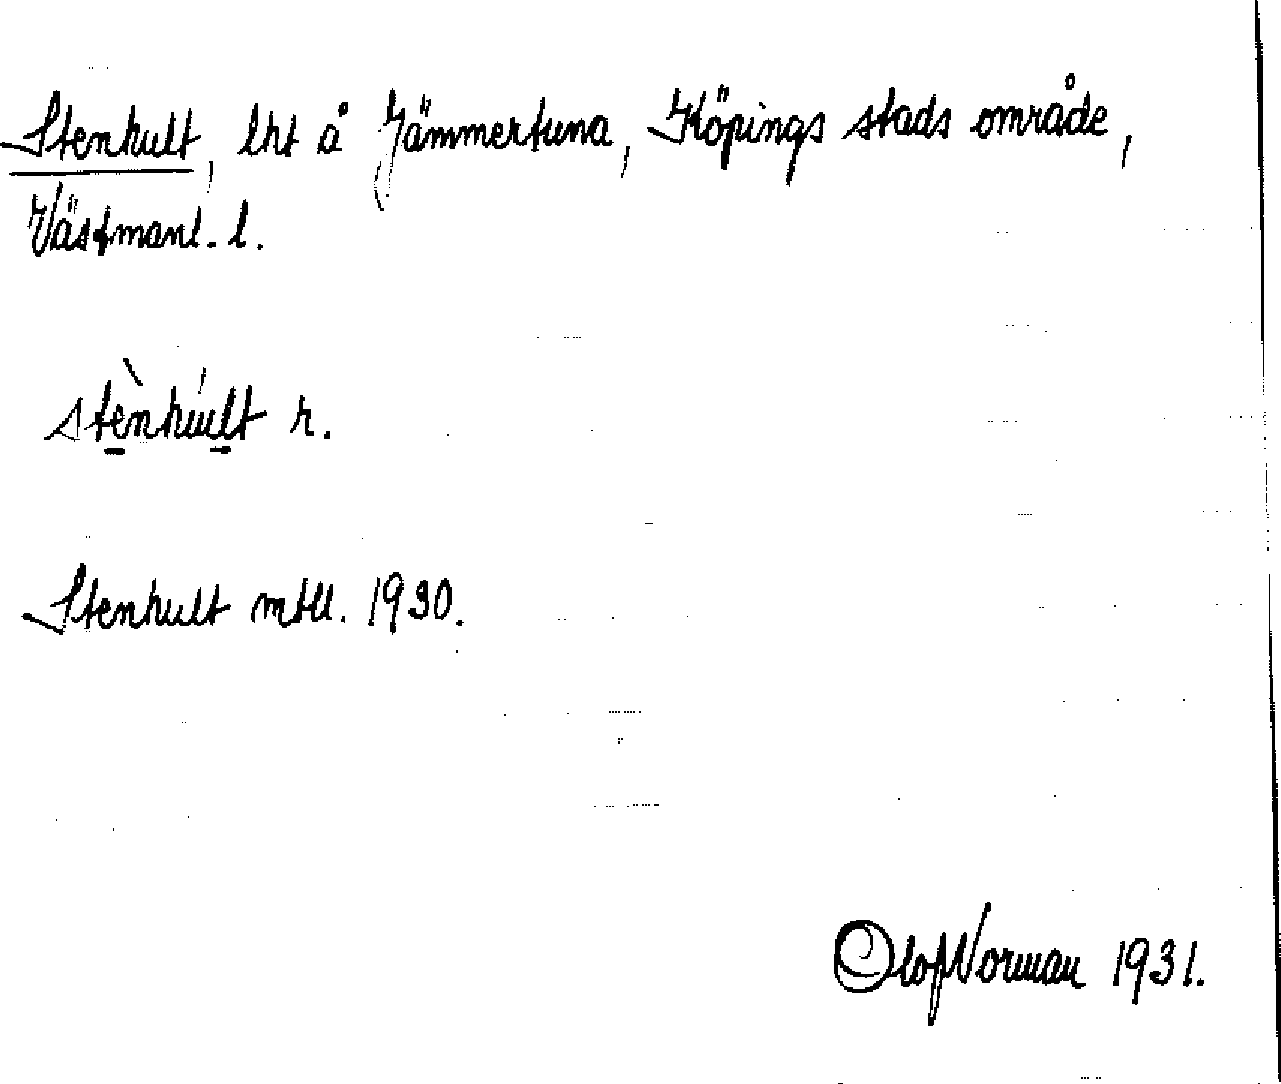 Stenhult, lht å Jämmertuna, Köpings stads område,
Västmanl. l.
stènhúlt r.
Stenhult mtll. 1930.
Olof Norman 1931.